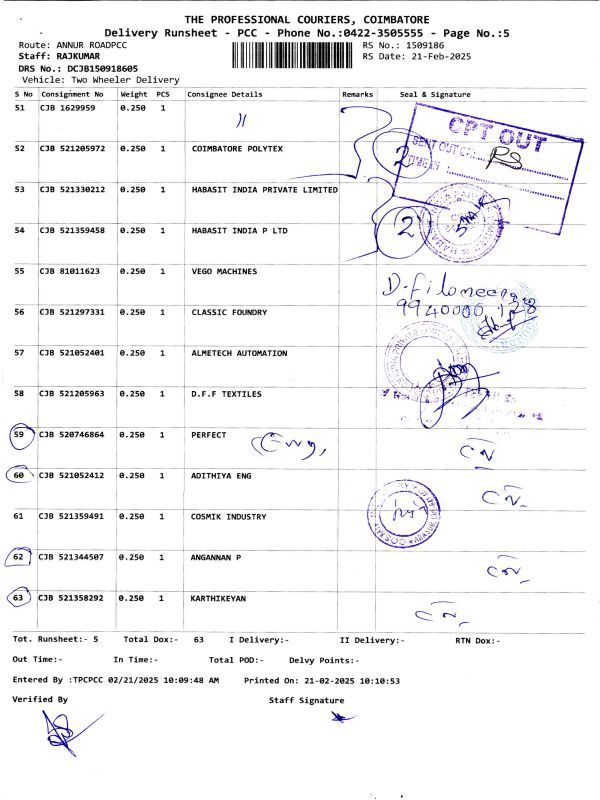 THE PROFESSIONAL COURIERS, COIMBATORE
Delivery Runsheet - PCC - Phone No.:0422-3505555 - Page No.:5
Route: ANNUR ROADPCC RS No.: 1509186
Staff: RAJKUMAR RS Date: 21-Feb-2025
DRS No.: DCJB150918605
Vehicle: Two Wheeler Delivery
S No Consignment No Weight PCS Consignee Details Remarks Seal & Signature
51 CJB 1629959 0.250 1 "
CPT OUT
SENT OUT
TIME IN
52 CJB 521205972 0.250 1 COIMBATORE POLYTEX 2
53 CJB 521330212 0.250 1 HABASIT INDIA PRIVATE LIMITED
54 CJB 521359458 0.250 1 HABASIT INDIA P LTD 2
55 CJB 81011623 0.250 1 VEGO MACHINES
D. Filomeena
56 CJB 521297331 0.250 1 CLASSIC FOUNDRY
57 CJB 521052401 0.250 1 ALMETECH AUTOMATION
58 CJB 521205963 0.250 1 D.F.F TEXTILES
59 CJB 520746864 0.250 1 PERFECT Eng, CN
60 CJB 521052412 0.250 1 ADITHIYA ENG CN
61 CJB 521359491 0.250 1 COSMIK INDUSTRY
62 CJB 521344507 0.250 1 ANGANNAN P CN
63 CJB 521358292 0.250 1 KARTHIKEYAN CN
Tot. Runsheet:- 5 Total Dox:- 63 I Delivery:- II Delivery:- RTN Dox:-
Out Time:- In Time:- Total POD:- Delvy Points:-
Entered By :TPCPCC 02/21/2025 10:09:48 AM Printed On: 21-02-2025 10:10:53
Verified By Staff Signature